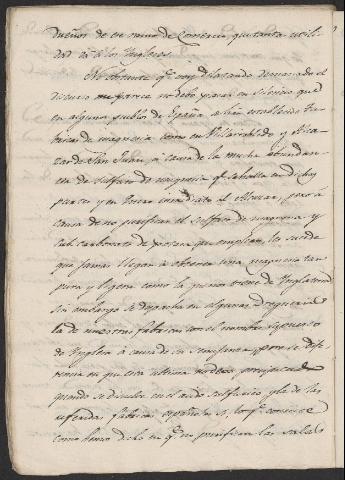 dueños de un ramo de Comercio que tanta utili-
dad dá á los Yngleses.
No obstante qe. voy dilatando demasiado el
discurso me parece no debo pasar en silencio que
en algunos pueblos de España se han establecido fa-
bricas de magnesia como en Villarrubio y Alca-
zar de San Juan, á causa de la mucha abundan-
cia de sulfato de magnesia qe. se halla en dichos
parages y en inmediato al Alcazar, pero á
causa de no purificar el sulfato de magnesia y
sub carbonato de potasa que emplean, les sucede
que jamas llegan á obtener una magnesia tan
pura y ligera como la que nos viene de Ynglaterra
sin embargo se despacha en algunas Droguerias
la de nuestras fabricas con el nombre supuesto
de Ynglesa á causa de su semejanza, pero se dis-
tingue en que esta ultima no deja
quando se disuelve en el acido sulfurico y la de las
referidas fabricas españolas si, lo qe. consiste
como hemos dicho en qe. no purifican las sales